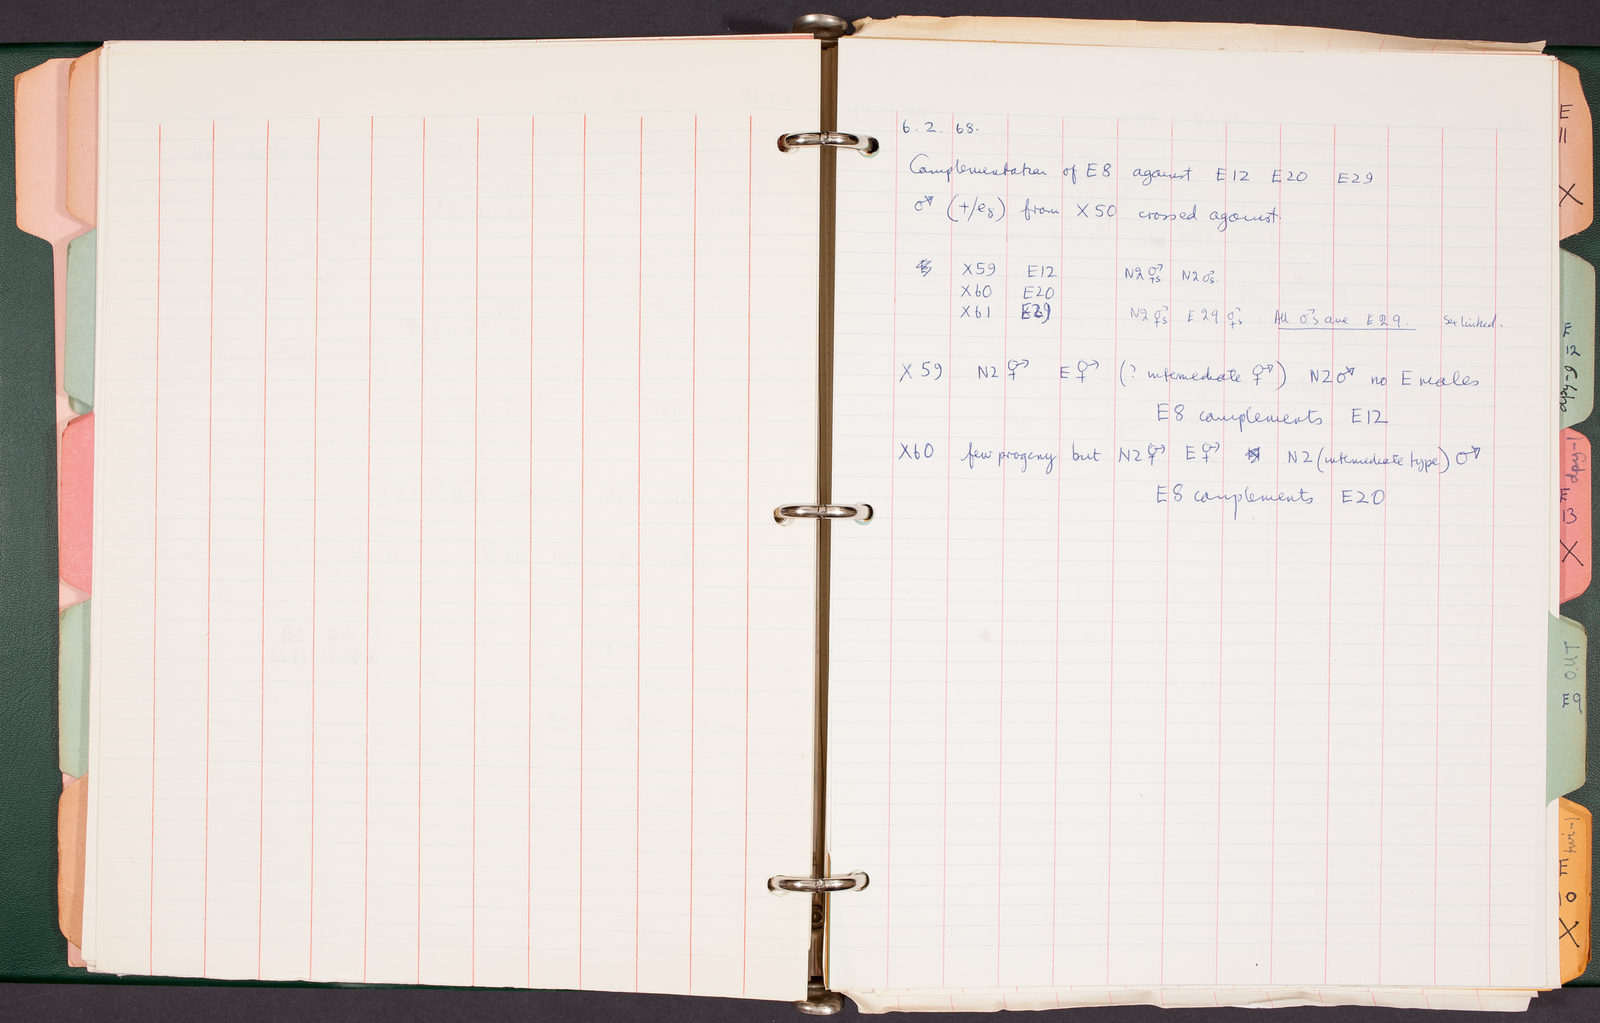 6. 2. 68.
Complementation of E8 against E12 E20 E29
♂ (+/e8) from X50 crossed against.
X59 E12 N2 ⚥s N2 ♂s.
X60 E20
X61 E29 N2 ⚥s E29 ⚥s All ♂s are E29. Sex linked.
X59 N2 ⚥ E ⚥ (? intermediate ⚥) N2 ♂ no E males
E8 complements E12
X60 few progeny but N2 ⚥ E ⚥ N2 (intermediate type) ♂
E8 complements E20
E
11
X
E
12
dpy-9
dpy-1
E
13
X
OUT
E9
E
10
X